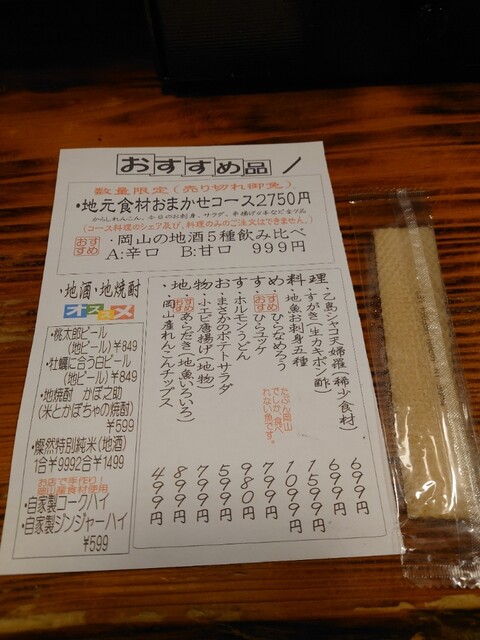 おすすめ品
数量限定(売り切れ御免)
・地元食材おまかせコース2750円
からしれんこん、今日のお刺身、サラダ、串揚げ
(コース料理のシェア及び、料理のみのご注文はできません。)
おすすめ ・岡山の地酒5種飲み比べ
A:辛口 B:甘口 999円
・地物おすすめ料理
・乙島シャコ天婦羅(稀少食材) 699円
・すがき(生カキポン酢) 699円
・地魚お刺身五種 1599円
・ひらなめろう 1099円
おすすめ ・ひらユッケ 799円
たぶん岡山でしか、食べれない魚です。
・ホルモンうどん 980円
・まさかのポテトサラダ 599円
・小エビ唐揚げ(地物) 799円
おすすめ ・あらだき(地魚いろいろ) 899円
・岡山産れんこんチップス 499円
・地酒・地焼酎
オススメ
・桃太郎ビール
(地ビール)¥849
・牡蠣に合う白ビール
(地ビール)¥849
・地焼酎 かぼ之助
(米とかぼちゃの焼酎)
¥599
・燦然特別純米(地酒)
1合¥999 2合¥1499
お店で手作り!
岡山産食材使用
・自家製コークハイ
・自家製ジンジャーハイ
¥599